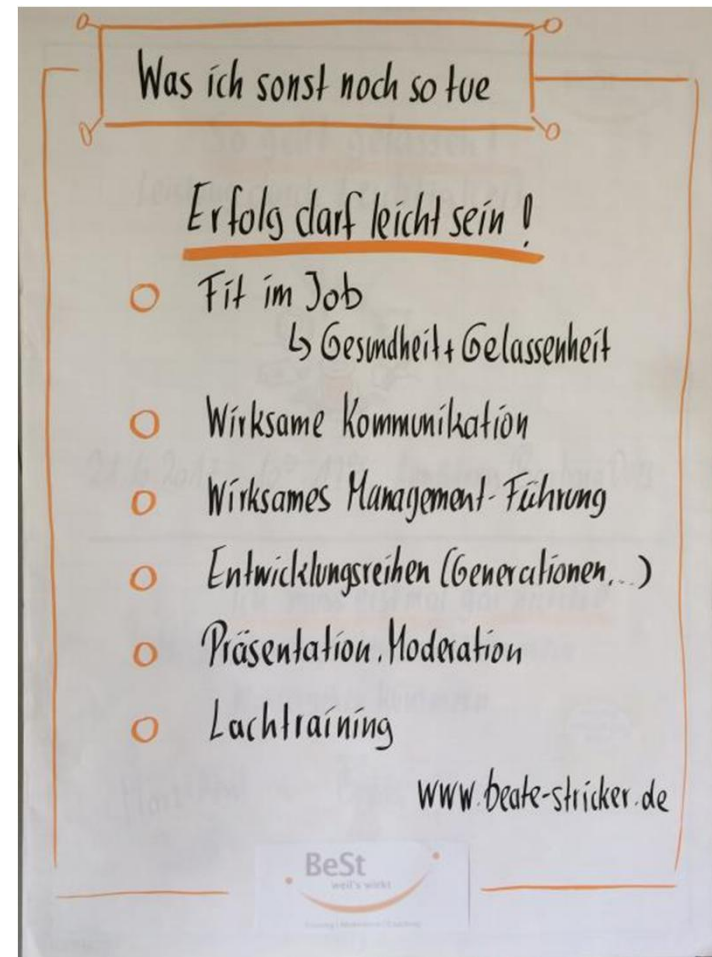 Was ich sonst noch so tue
Erfolg darf leicht sein!
Fit im Job
↳ Gesundheit + Gelassenheit
Wirksame Kommunikation
Wirksames Management-Führung
Entwicklungsreihen (Generationen,..)
Präsentation, Moderation
Lachtraining
www.beate-stricker.de
BeSt
weil's wirkt